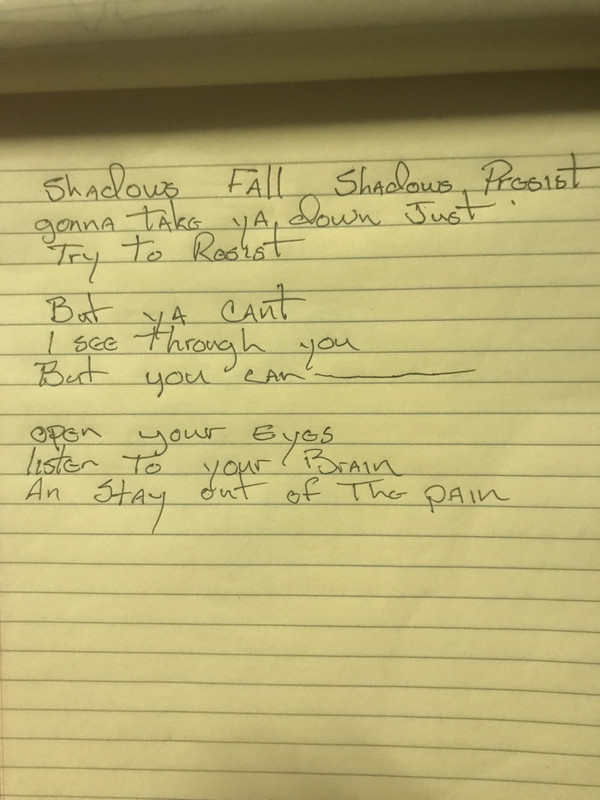 Shadows Fall Shadows Presist
gonna take ya down Just
Try to Resist
But ya cant
I see through you
But you can
open your Eyes
listen to your Brain
An stay out of the pain